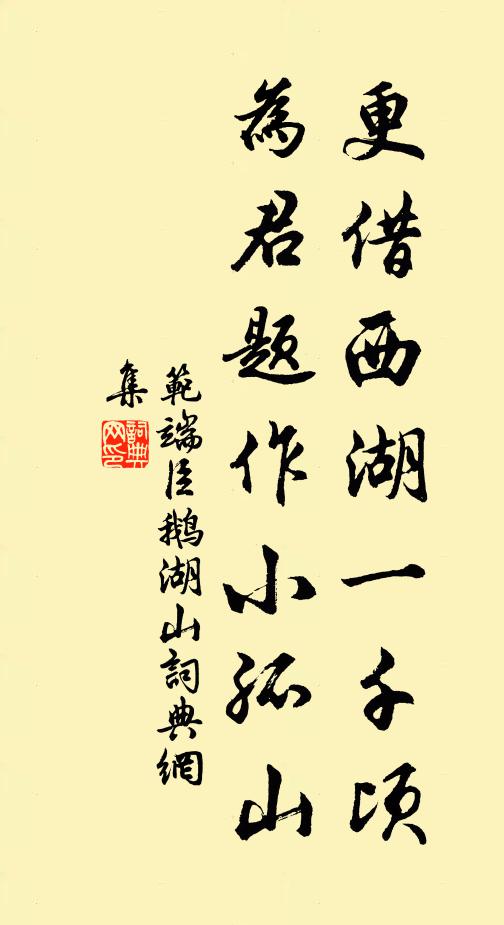 更借西湖一千頃
為君題作小孤山
範端臣鵝湖山詞典網
集
詞典
网印